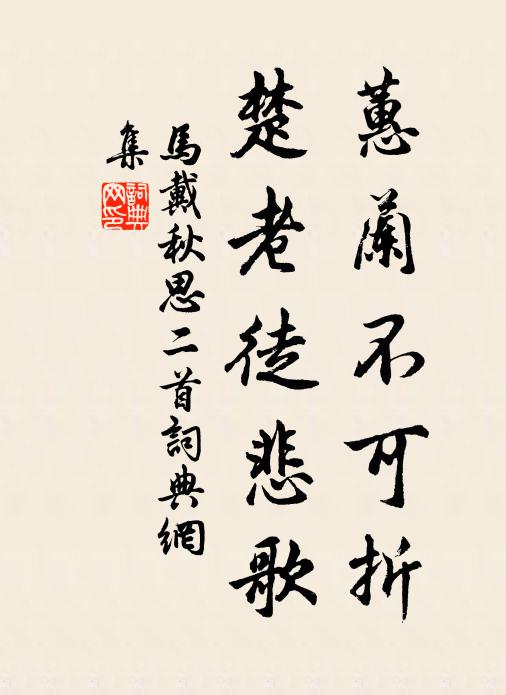 蕙蘭不可折
楚老徒悲歌
馬戴秋思二首詞典網
集
詞典網印